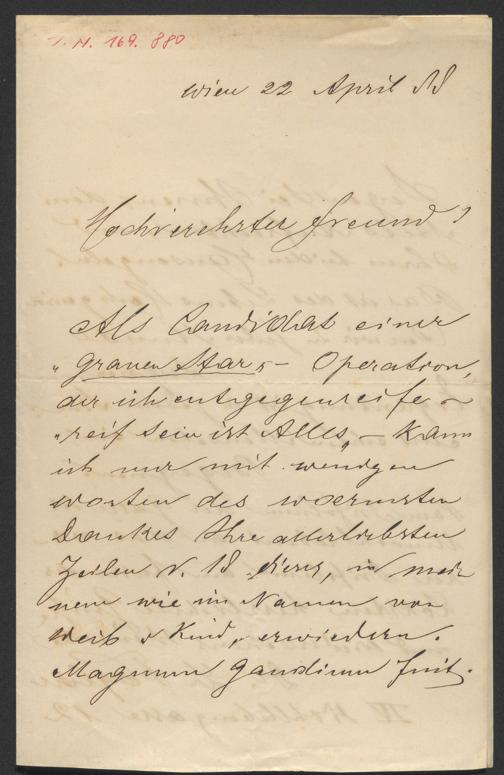 I. N. 169.880
Wien 22 April 88
Hochverehrter Freund!
Als Candidat einer
"grauen Star" - Operation,
der ich entgegenreife -
"reif sein ist Alles" - kann
ich nur mit wenigen
Worten des waermsten
Dankes Ihre allerliebsten
Zeilen v. 18 dieses, in mei-
nem wie im Namen von
Weib & Kind, erwiedern.
Magnum Gaudium fuit.